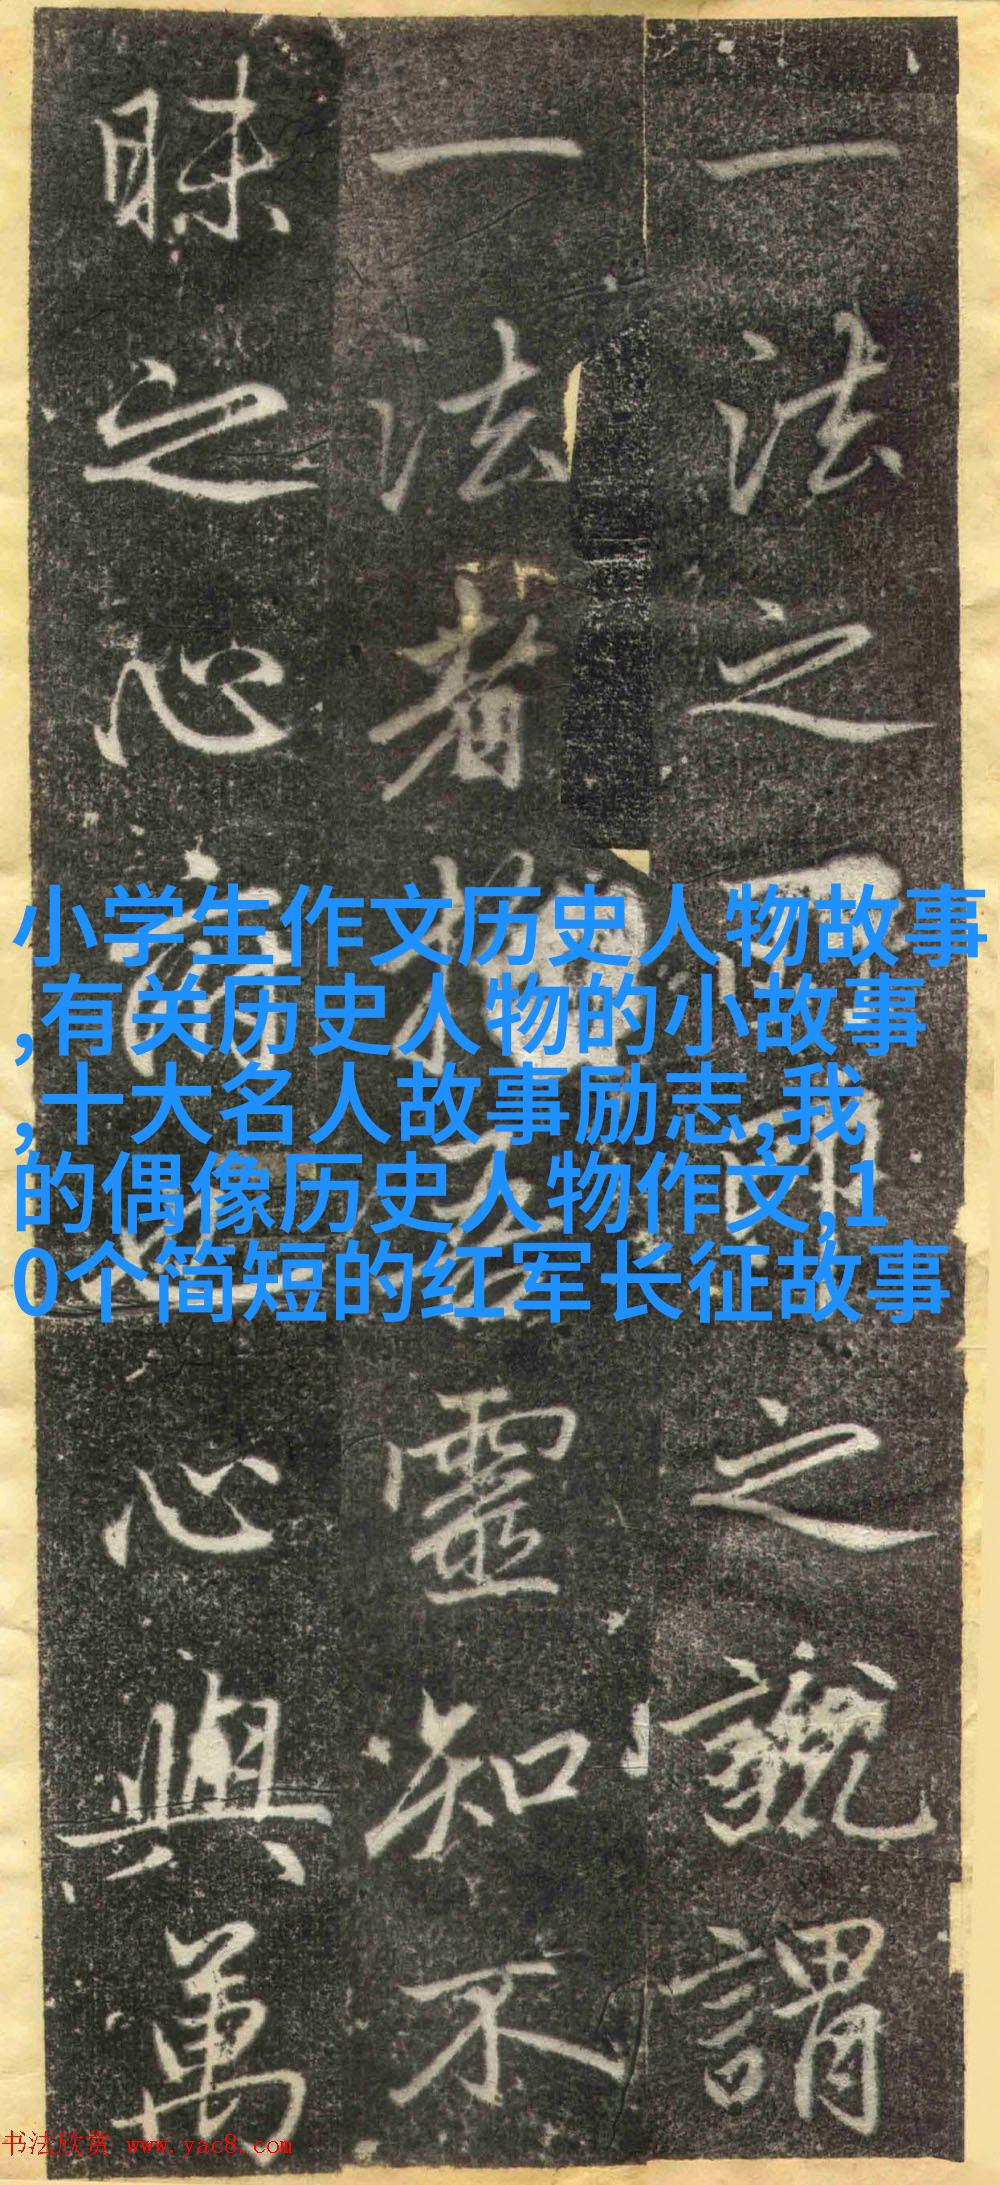 一法之之說謂
一法者靈知不
昧之心心與萬
小学生作文历史人物故事
,有关历史人物的小故事
,十大名人故事励志,我
的偶像历史人物作文,1
0个简短的红军长征故事
书法欣赏 www.yac8.com